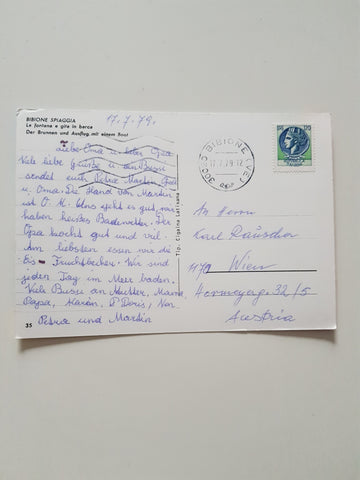 BIBIONE SPIAGGIA
Le fontane e gite in barca
Der Brunnen und Ausflug mit einem Boot
17.7.79.
Liebe Oma und lieber Opa
Viele liebe Grüße u. ein Bussi
sendet euch Petra Martin Opa
u. Oma. Die Hand von Martin
ist O.K. Uns geht es gut, wir
haben herrliches Badewetter. Der
Opa kocht gut und viel.
Am liebsten essen wir die
Eis - Fruchtbecher. Wir sind
jeden Tag im Meer baden.
Viele Bussi an Mutter, Mama,
Papa, Karin, P. Doris,
Petra und Martin
35
Tip. Cigaina Latisana
30020 BIBIONE (VE)
17.7.79.12
An Herrn
Karl
1170 Wien
32/5
Austria